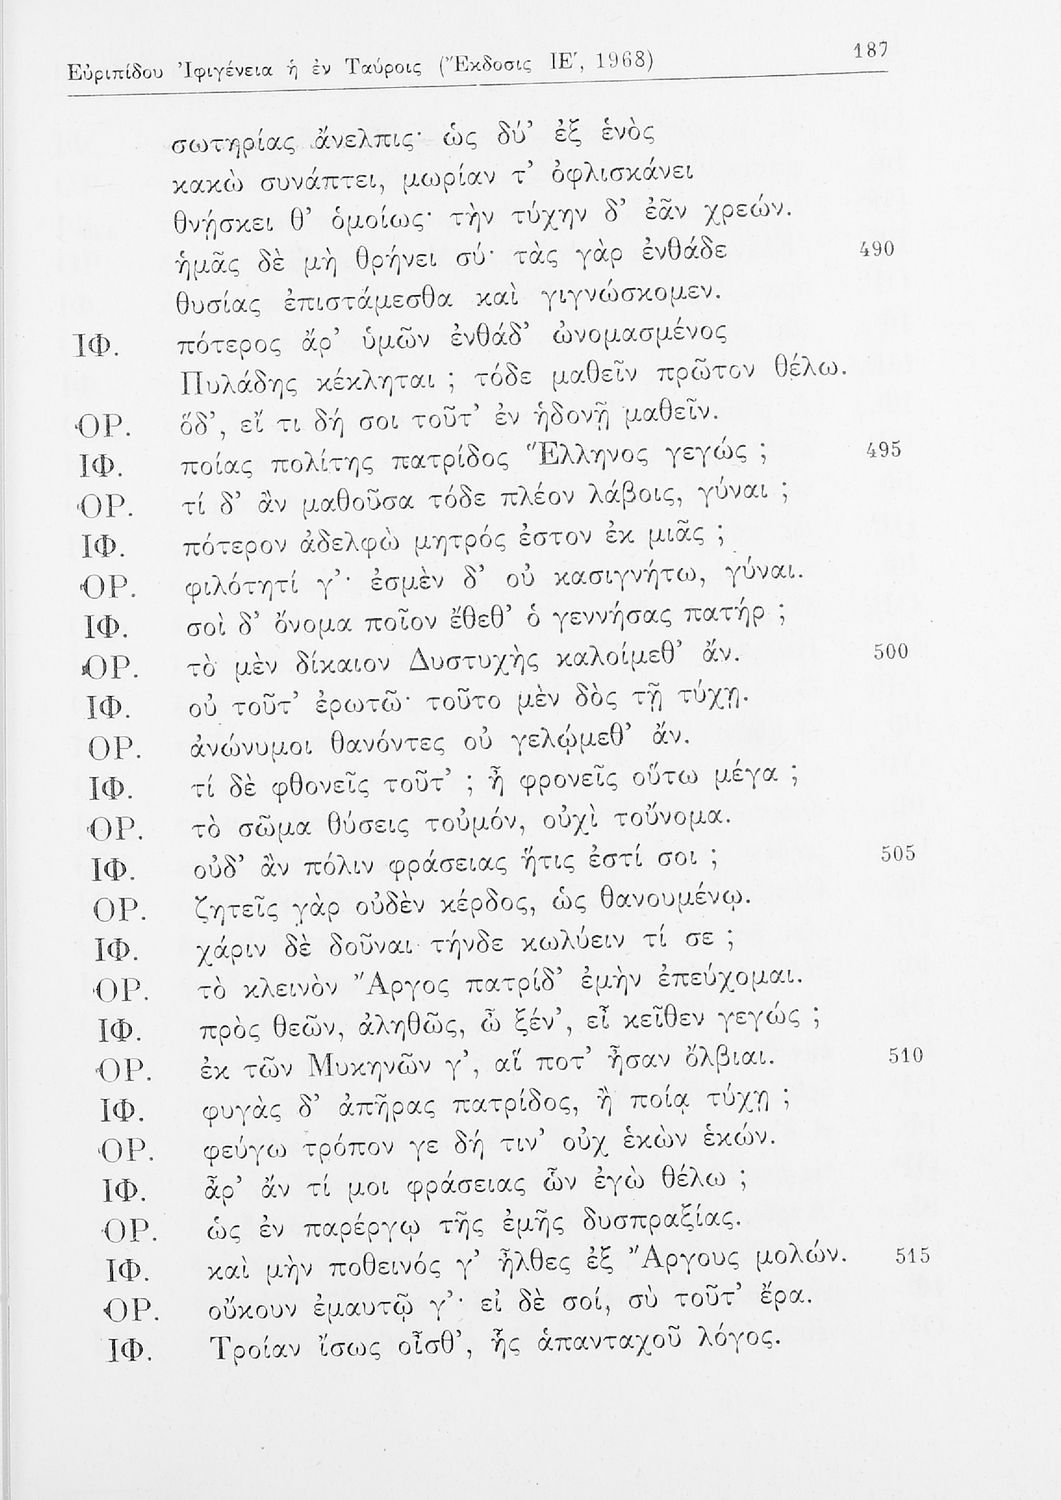 Εὐριπίδου Ἰφιγένεια ἡ ἐν Ταύροις (Ἔκδοσις ΙΕ', 1968) 187
σωτηρίας ἄνελπις· ὡς δύ' ἐξ ἑνὸς
κακὼ συνάπτει, μωρίαν τ' ὀφλισκάνει
θνῄσκει θ' ὁμοίως· τὴν τύχην δ' ἐᾶν χρεών.
ἡμᾶς δὲ μὴ θρήνει σύ· τὰς γὰρ ἐνθάδε 490
θυσίας ἐπιστάμεσθα καὶ γιγνώσκομεν.
ΙΦ. πότερος ἄρ' ὑμῶν ἐνθάδ' ὠνομασμένος
Πυλάδης κέκληται ; τόδε μαθεῖν πρῶτον θέλω.
ΟΡ. ὅδ', εἴ τι δή σοι τοῦτ' ἐν ἡδονῇ μαθεῖν.
ΙΦ. ποίας πολίτης πατρίδος Ἕλληνος γεγώς ; 495
ΟΡ. τί δ' ἂν μαθοῦσα τόδε πλέον λάβοις, γύναι ;
ΙΦ. πότερον ἀδελφὼ μητρός ἐστον ἐκ μιᾶς ;
ΟΡ. φιλότητί γ'· ἐσμὲν δ' οὐ κασιγνήτω, γύναι.
ΙΦ. σοὶ δ' ὄνομα ποῖον ἔθεθ' ὁ γεννήσας πατήρ ;
ΟΡ. τὸ μὲν δίκαιον Δυστυχὴς καλοίμεθ' ἄν. 500
ΙΦ. οὐ τοῦτ' ἐρωτῶ· τοῦτο μὲν δὸς τῇ τύχῃ.
ΟΡ. ἀνώνυμοι θανόντες οὐ γελῴμεθ' ἄν.
ΙΦ. τί δὲ φθονεῖς τοῦτ' ; ἦ φρονεῖς οὕτω μέγα ;
ΟΡ. τὸ σῶμα θύσεις τοὐμόν, οὐχὶ τοὔνομα.
ΙΦ. οὐδ' ἂν πόλιν φράσειας ἥτις ἐστί σοι ; 505
ΟΡ. ζητεῖς γὰρ οὐδὲν κέρδος, ὡς θανουμένῳ.
ΙΦ. χάριν δὲ δοῦναι τήνδε κωλύειν τί σε ;
ΟΡ. τὸ κλεινὸν Ἄργος πατρίδ' ἐμὴν ἐπεύχομαι.
ΙΦ. πρὸς θεῶν, ἀληθῶς, ὦ ξέν', εἶ κεῖθεν γεγώς ;
ΟΡ. ἐκ τῶν Μυκηνῶν γ', αἵ ποτ' ἦσαν ὄλβιαι. 510
ΙΦ. φυγὰς δ' ἀπῆρας πατρίδος, ἢ ποίᾳ τύχῃ ;
ΟΡ. φεύγω τρόπον γε δή τιν' οὐχ ἑκὼν ἑκών.
ΙΦ. ἆρ' ἄν τί μοι φράσειας ὧν ἐγὼ θέλω ;
ΟΡ. ὡς ἐν παρέργῳ τῆς ἐμῆς δυσπραξίας.
ΙΦ. καὶ μὴν ποθεινός γ' ἦλθες ἐξ Ἄργους μολών. 515
ΟΡ. οὔκουν ἐμαυτῷ γ'· εἰ δὲ σοί, σὺ τοῦτ' ἔρα.
ΙΦ. Τροίαν ἴσως οἶσθ', ἧς ἁπανταχοῦ λόγος.